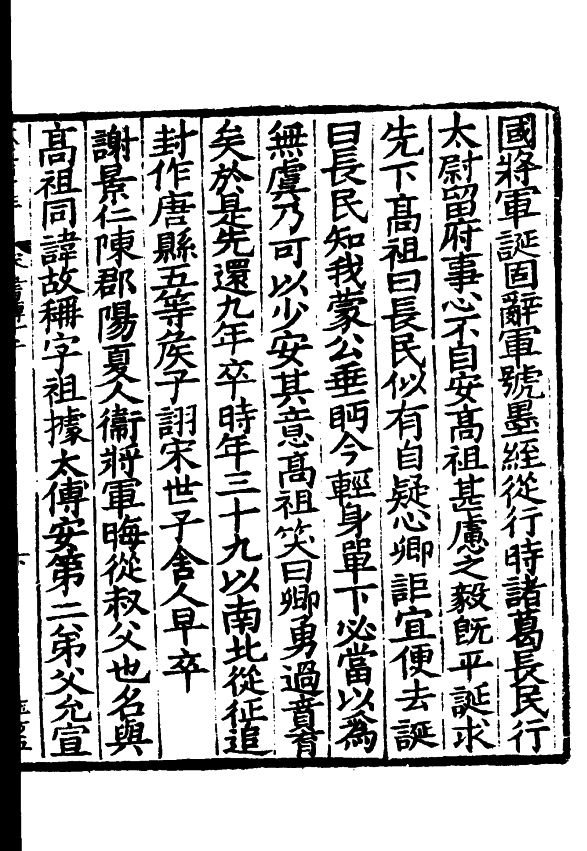 國將軍誕固辭軍號墨絰從行時諸葛長民行
太尉留府事心不自安高祖甚慮之毅旣平誕求
先下高祖曰長民似有自疑心卿詎宜便去誕
曰長民知我蒙公垂眄今輕身單下必當以爲
無虞乃可以少安其意高祖笑曰卿勇過賁育
矣於是先還九年卒時年三十九以南北從征追
封作唐縣五等侯子詡宋世子舍人早卒
謝景仁陳郡陽夏人衞將軍晦從叔父也名與
高祖同諱故稱字祖據太傅安第二弟父允宣